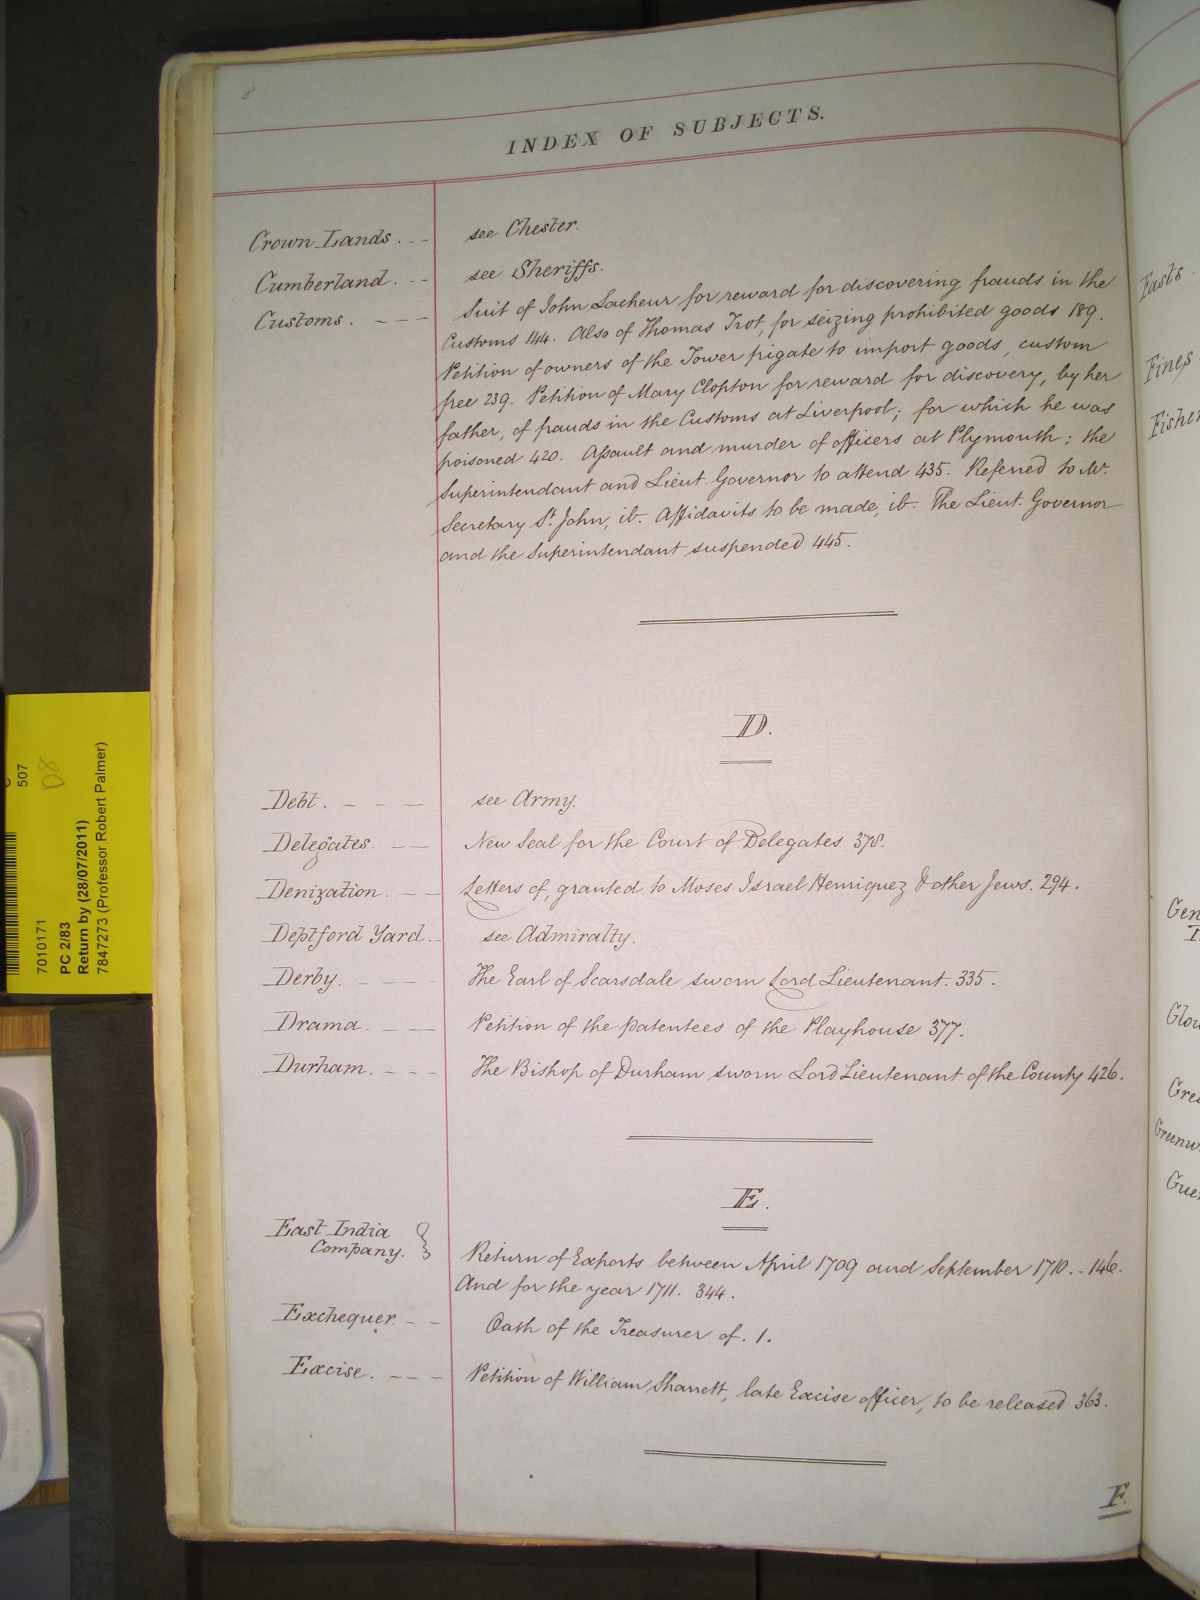 8
INDEX OF SUBJECTS.
Crown Lands . - - see Chester.
Cumberland. - - see Sheriffs.
Customs . - - - Suit of John Lacheur for reward for discovering frauds in the
Customs 144. Also of Thomas Trot, for seizing prohibited goods 189.
Petition of owners of the Tower frigate to import goods, custom
free 239. Petition of Mary Clopton for reward for discovery, by her
father, of frauds in the Customs at Liverpool; for which he was
poisoned 420. Assault and murder of officers at Plymouth; the
Superintendant and Lieut. Governor to attend 435. Referred to Mr.
Secretary St. John, ib. Affidavits to be made, ib. The Lieut. Governor
and the Superintendant suspended 445.
D.
Debt. - - - see Army.
Delegates. - - New Seal for the Court of Delegates 378.
Denization. - - Letters of, granted to Moses Israel Henriquez & other Jews. 294.
Deptford Yard. - see Admiralty.
Derby. - - - - The Earl of Scarsdale sworn Lord Lieutenant. 335.
Drama. - - - Petition of the patentees of the Playhouse 377.
Durham. - - - The Bishop of Durham sworn Lord Lieutenant of the County 426.
E.
East India
Company. } Return of Exports between April 1709 and September 1710. - 146.
And for the year 1711. 344.
Exchequer. - - Oath of the Treasurer of. 1.
Excise. - - - Petition of William Sharrett, late Excise officer, to be released 363.
F.
Fasts
Fines
Fisher
Gen
Glou
Gree
Greenw
Guer
507
D8
7010171
PC 2/83
Return by (28/07/2011)
7847273 (Professor Robert Palmer)